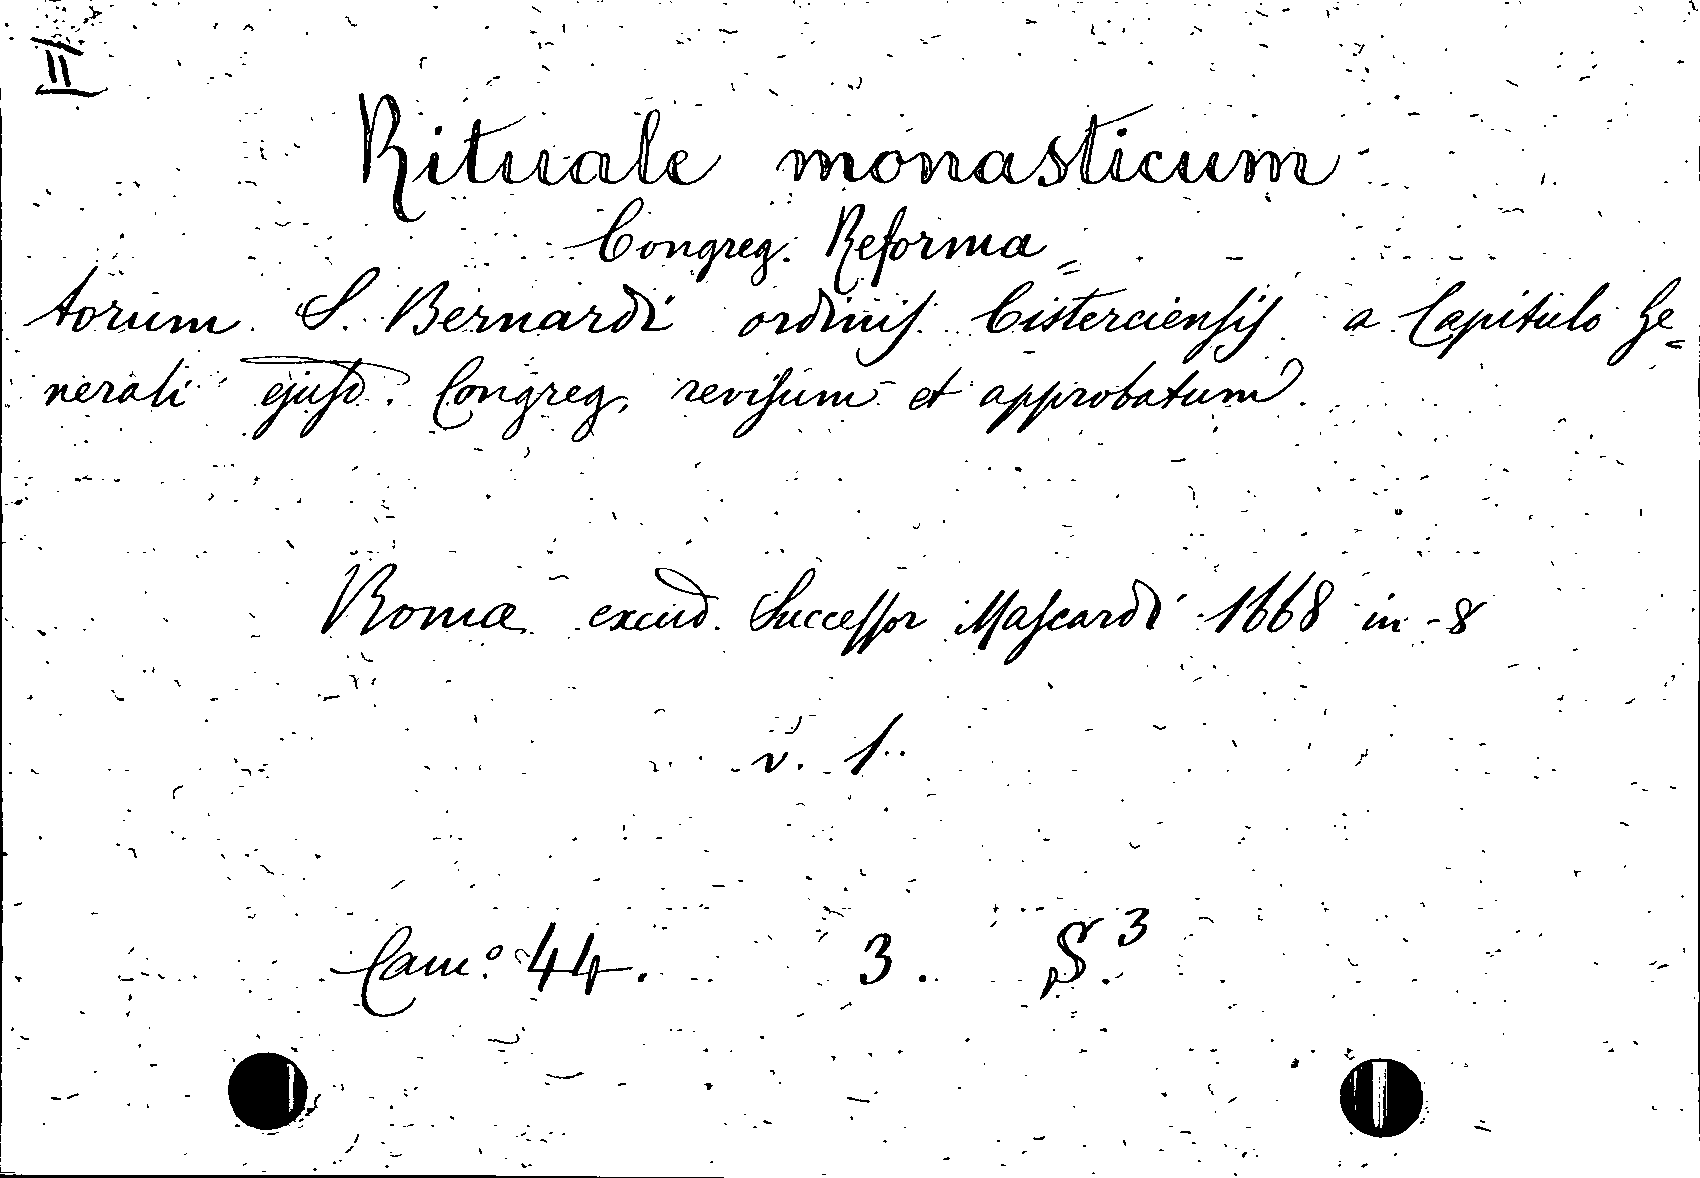 II
Rituale monasticum
Congreg. Reforma=
torum S. Bernardi ordinis Cisterciensis a Capitulo Ge=
nerali ejusd. Congreg. revisum et approbatum.
Romæ excud. Successor Mascardi 1668 in-8
v. 1.
Cam.º 44. 3. S.³